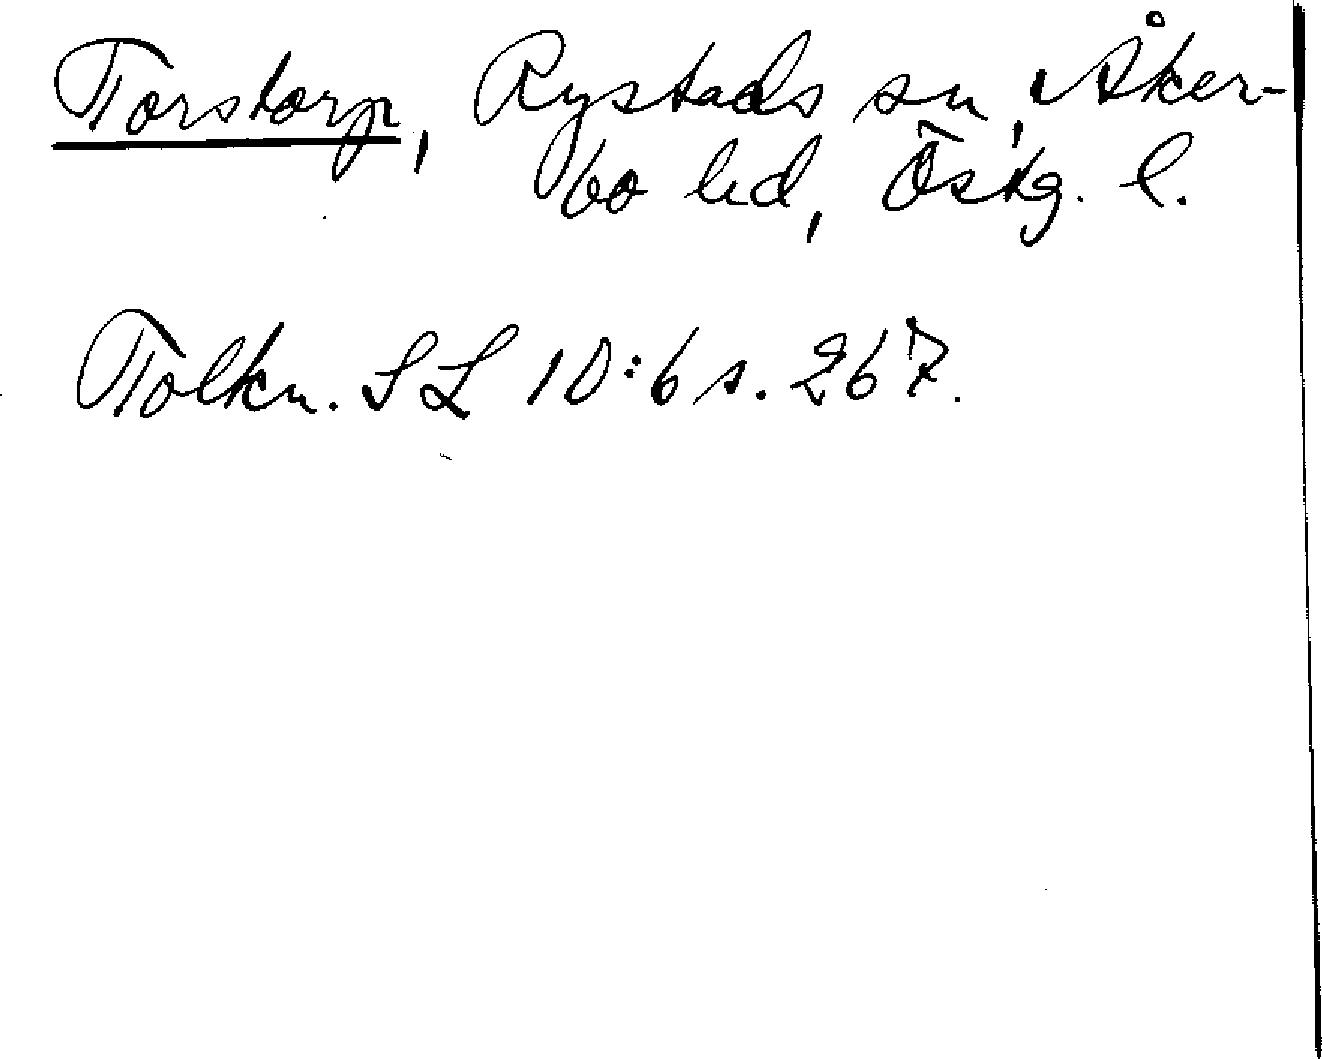 Torstorp, Rystads sn, Åker-
bo hd, Östg. l.
Tolkn. SL 10:6 s. 267.